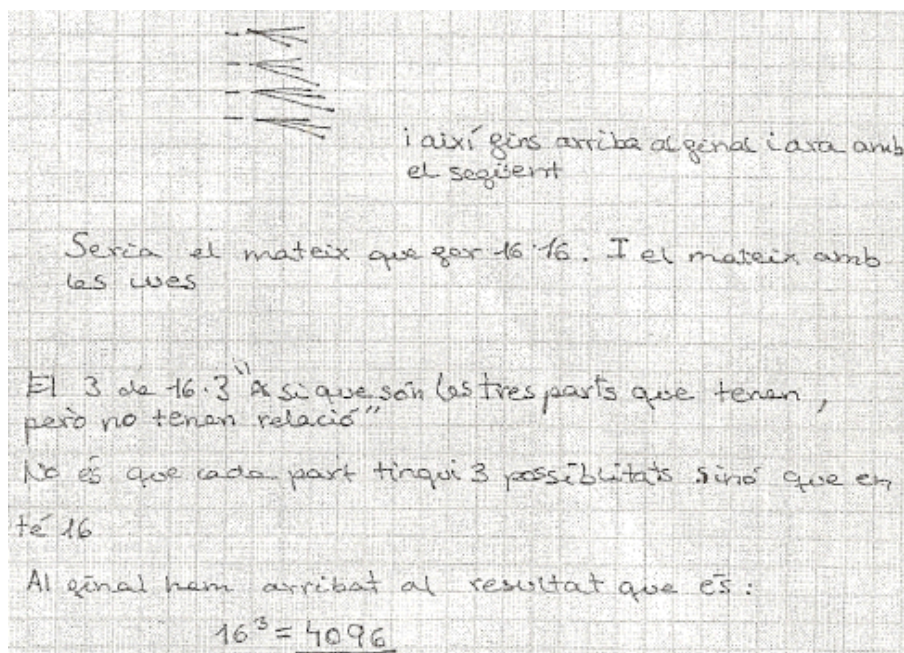 i així fins arriba al final i ara amb
el següent
Seria el mateix que fer 16·16. I el mateix amb
les cues
El 3 de 16·3 "A si que són les tres parts que tenen,
però no tenen relació"
No és que cada part tinqui 3 possiblitats sinó que en
té 16
Al final hem arribat al resultat que és:
16³ = 4096